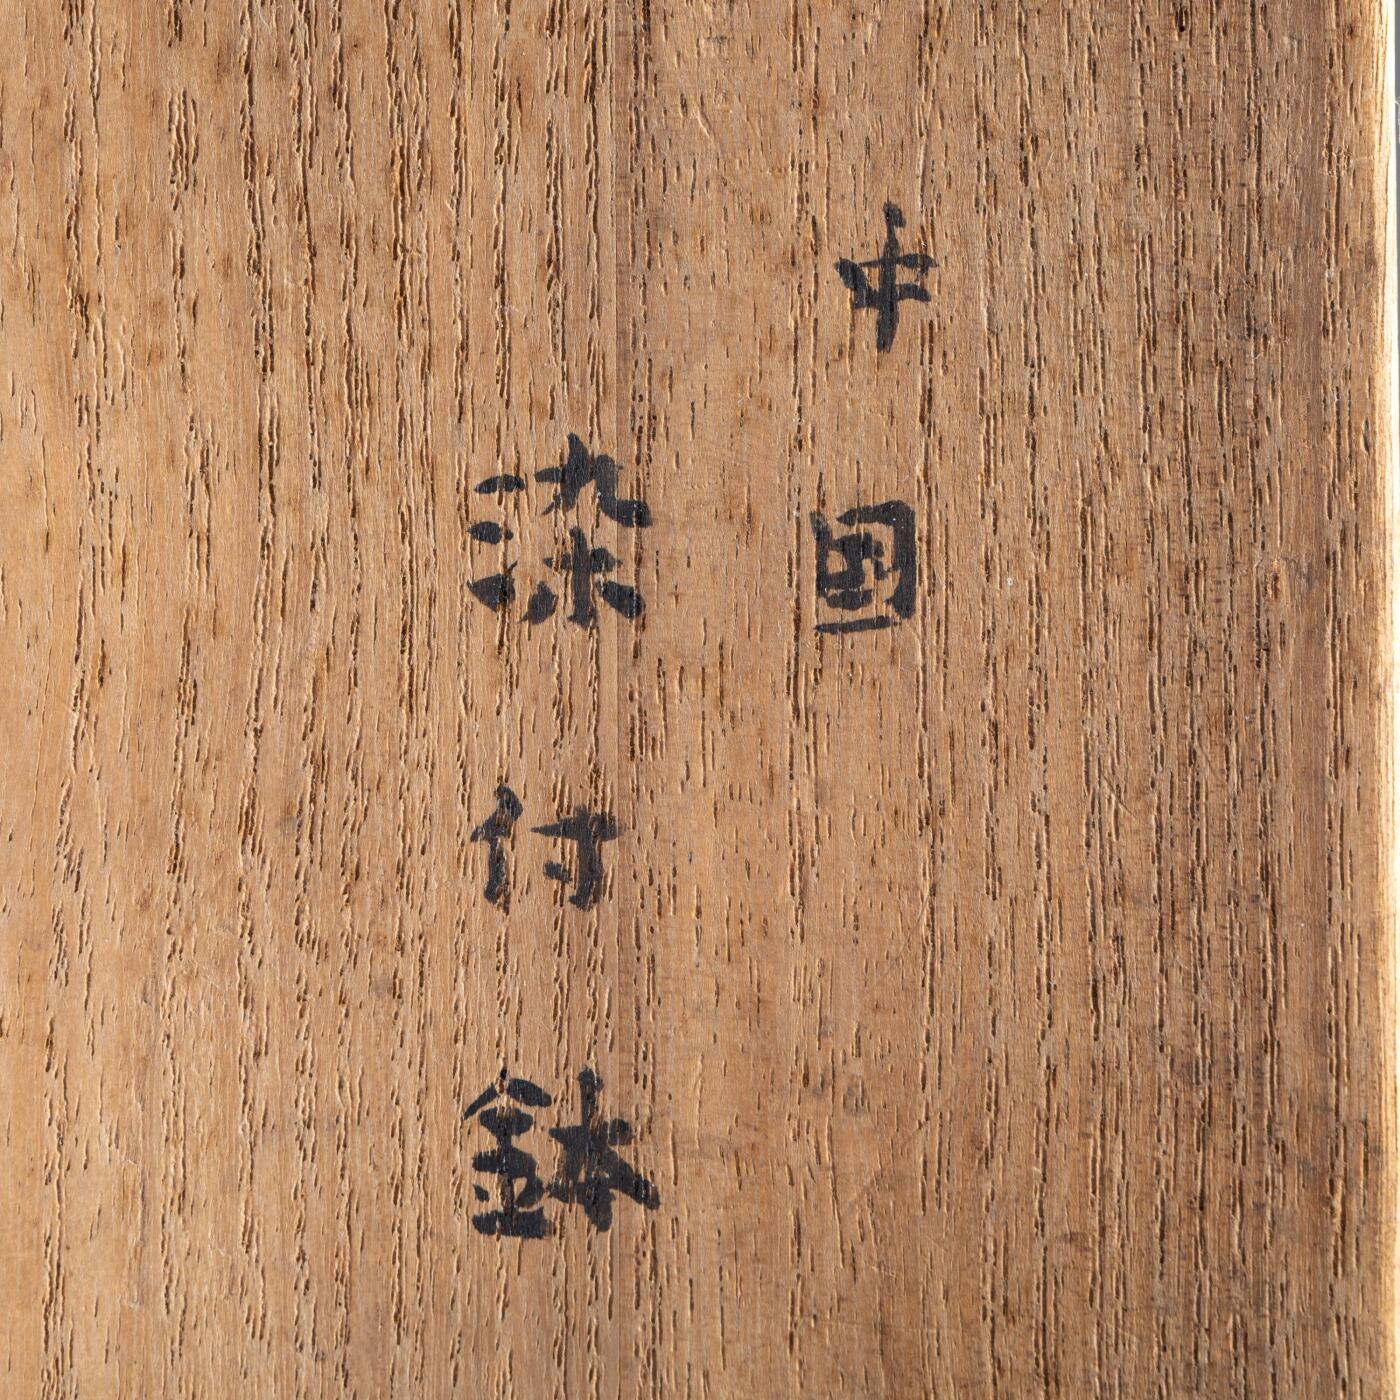 中国
染付鉢